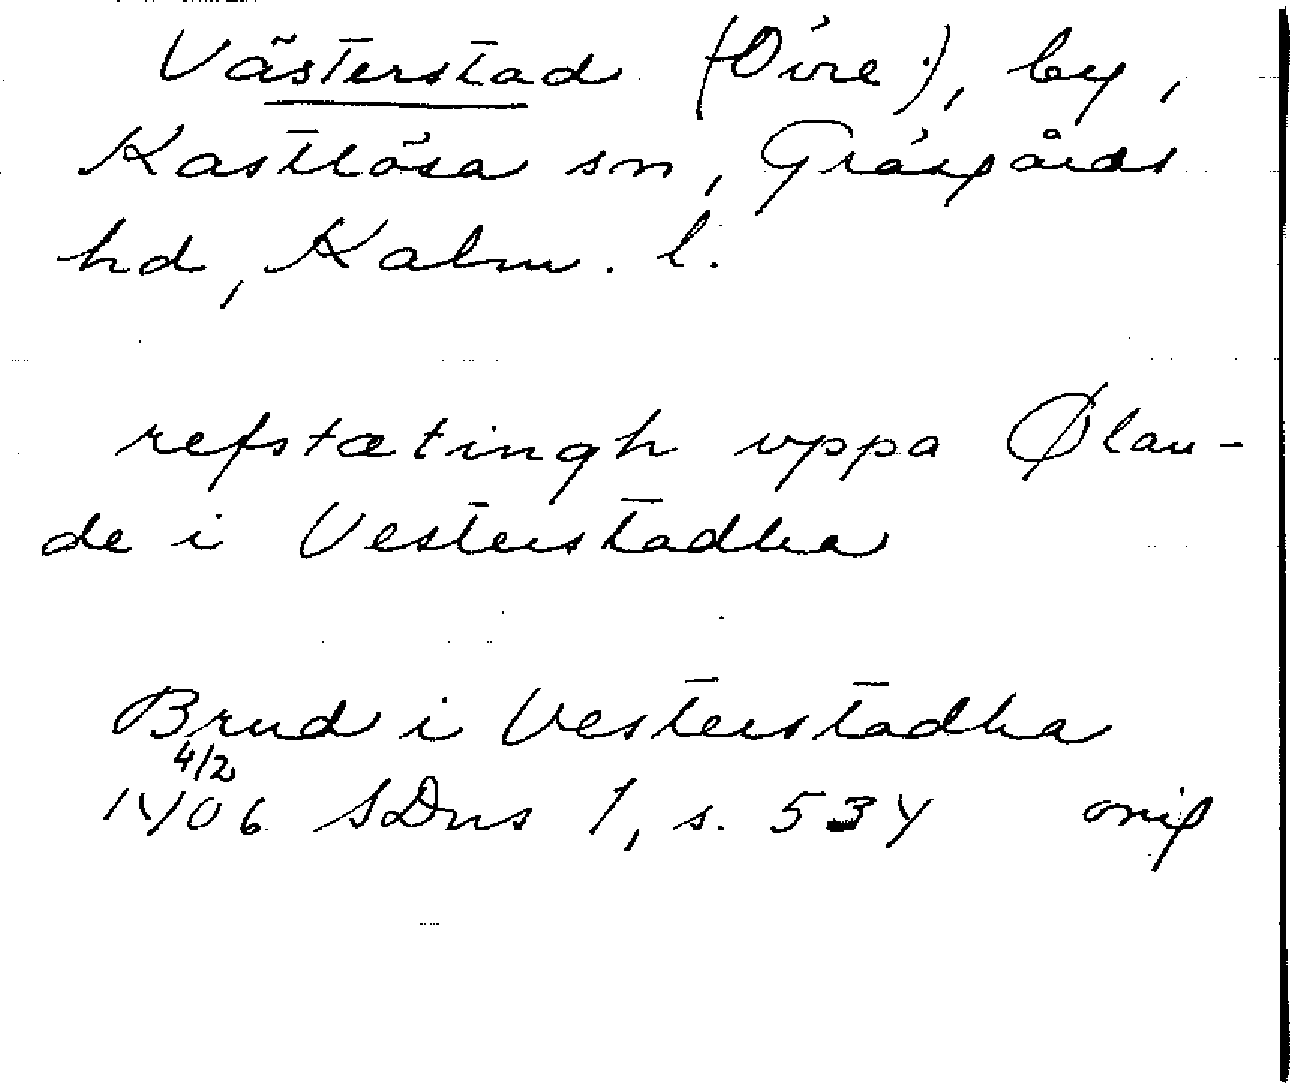 Västerstad (Övre), by,
Kastlösa sn, Gräsgårds
hd, Kalm. l.
refstætingh vppa Ølan-
de i Vesterstadha
Brud i Vesterstadha
4/2
1406 SDns 1, s. 534 orig